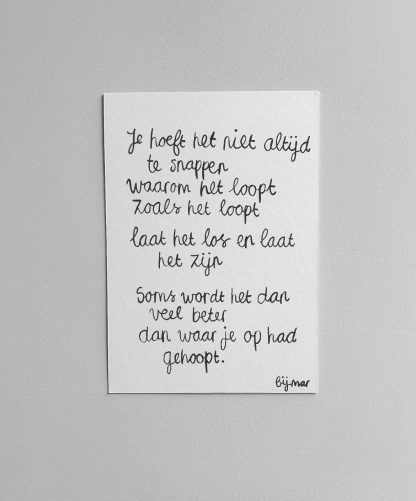 Je hoeft het niet altijd
te snappen
waarom het loopt
zoals het loopt
laat het los en laat
het zijn
Soms wordt het dan
veel beter
dan waar je op had
gehoopt.
bij-mar